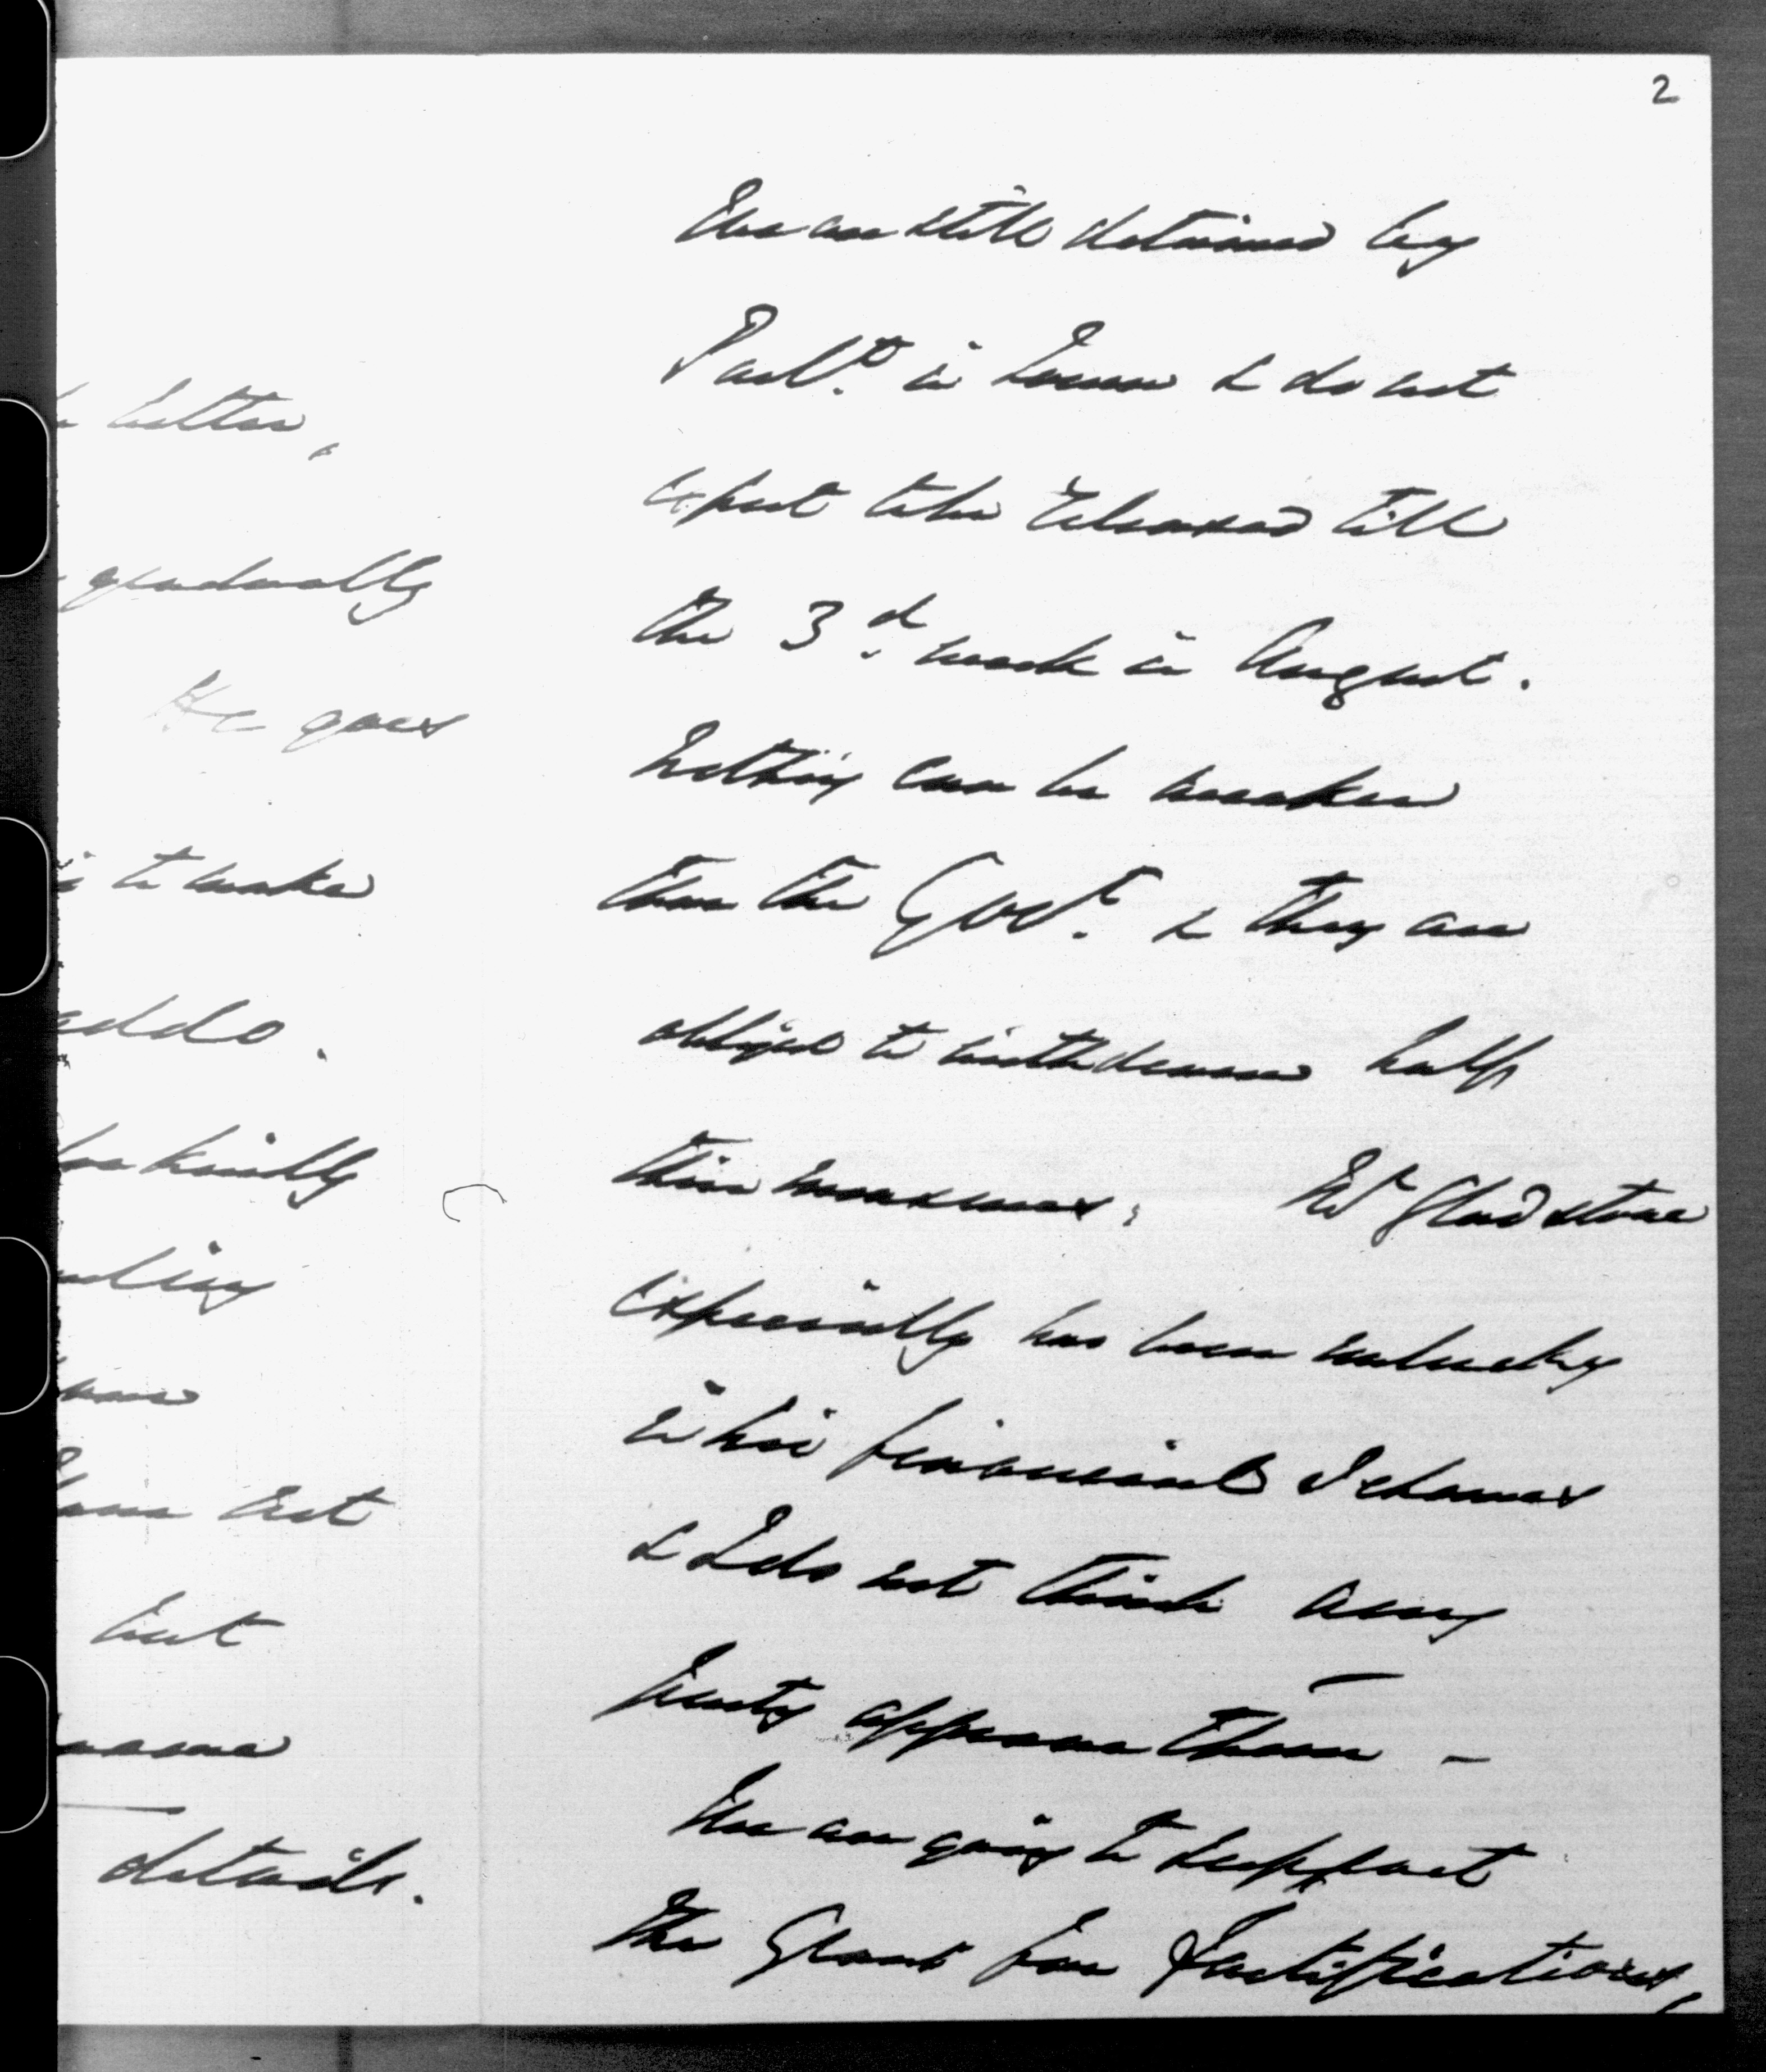 2
We are still detained by
Parlt. in Town & do not
expect to be released till
the 3d. week in August.
Nothing can be weaker
than the Govt. & they are
obliged to withdraw half
their measures. Mr Gladstone
especially has been unlucky
in his financial Schemes
& I do not think any
party approves them –
We are going to support
the Grant for Fortifications,
better,
gradually
He goes
to make
kindly
not
but
details.